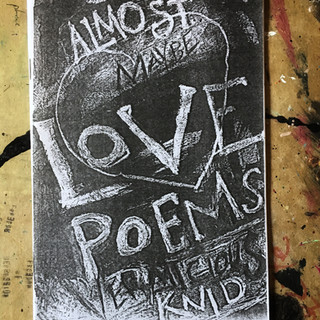 ALMOST
MAYBE
LOVE
POEMS
VERMICIOUS
KNID